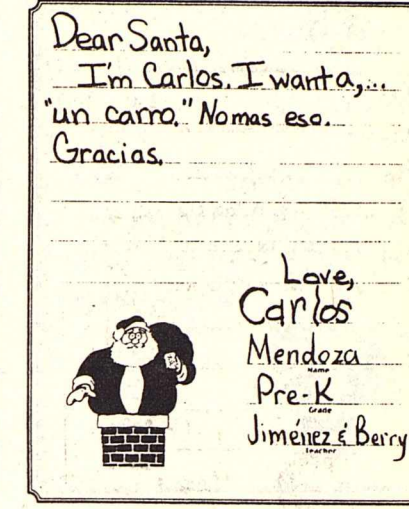 Dear Santa,
I'm Carlos. I want a,...
"un carro." Nomas eso.
Gracias.
Love,
Carlos
Mendoza
Name
Pre-K
Grade
Jiménez & Berry
Teacher